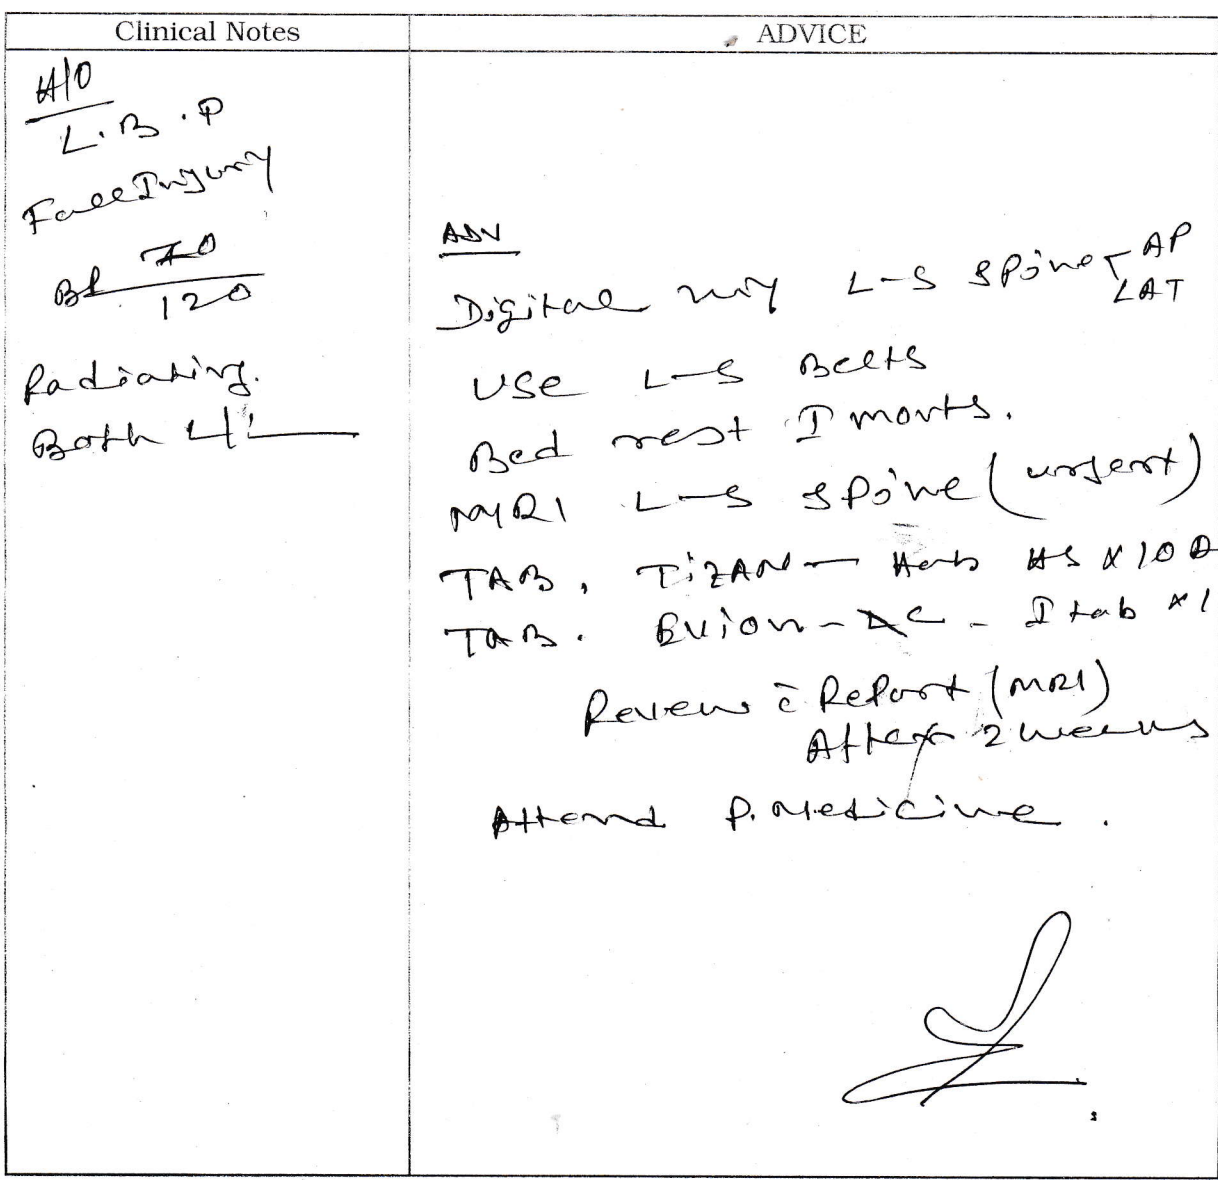 Clinical Notes
ADVICE
H/O
L.B.P
Fall Injury
BP 70
120
Radiating.
Both L/L
ADV
Digital L-S Spine AP
LAT
USE L-S Belts
Bed rest I month.
MRI L-S Spine (urgent)
TAB. TiZAN HS x 10 D
TAB. Evion - - I tab x 1
Review c̄ Report (MRI)
After 2 weeks
Attend P. Medicine.